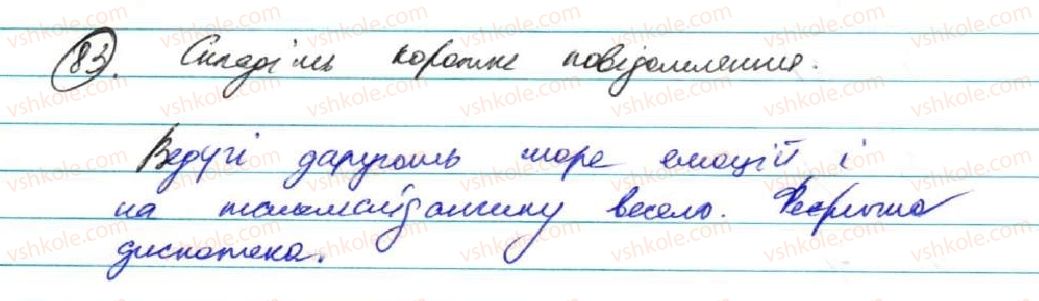 83. Складіть коротке повідомлення.
Ведучі дарують море емоцій і
на танцмайданчику весело.
дискотека.